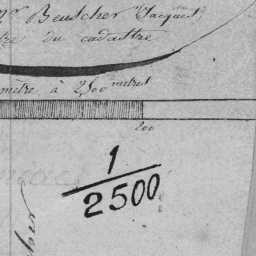 Mr. Beuscher Jacques
du cadastre
mètre à 2500 mètres
200
1
2500